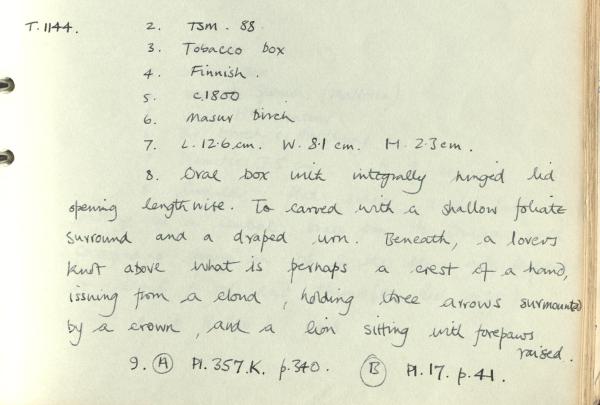 T.1144. 2. TSM. 88.
3. Tobacco box
4. Finnish.
5. c.1800
6. Masur birch
7. L. 12.6 cm. W. 8.1 cm. H. 2.3 cm.
8. Oval box with integrally hinged lid
opening lengthwise. To carved with a shallow foliate
surround and a draped urn. Beneath, a lovers
knot above what is perhaps a crest of a hand,
issuing from a cloud, holding three arrows surmounted
by a crown, and a lion sitting with forepaws
raised.
9. (A) Pl. 357.K. p.340. (B) Pl. 17. p.41.